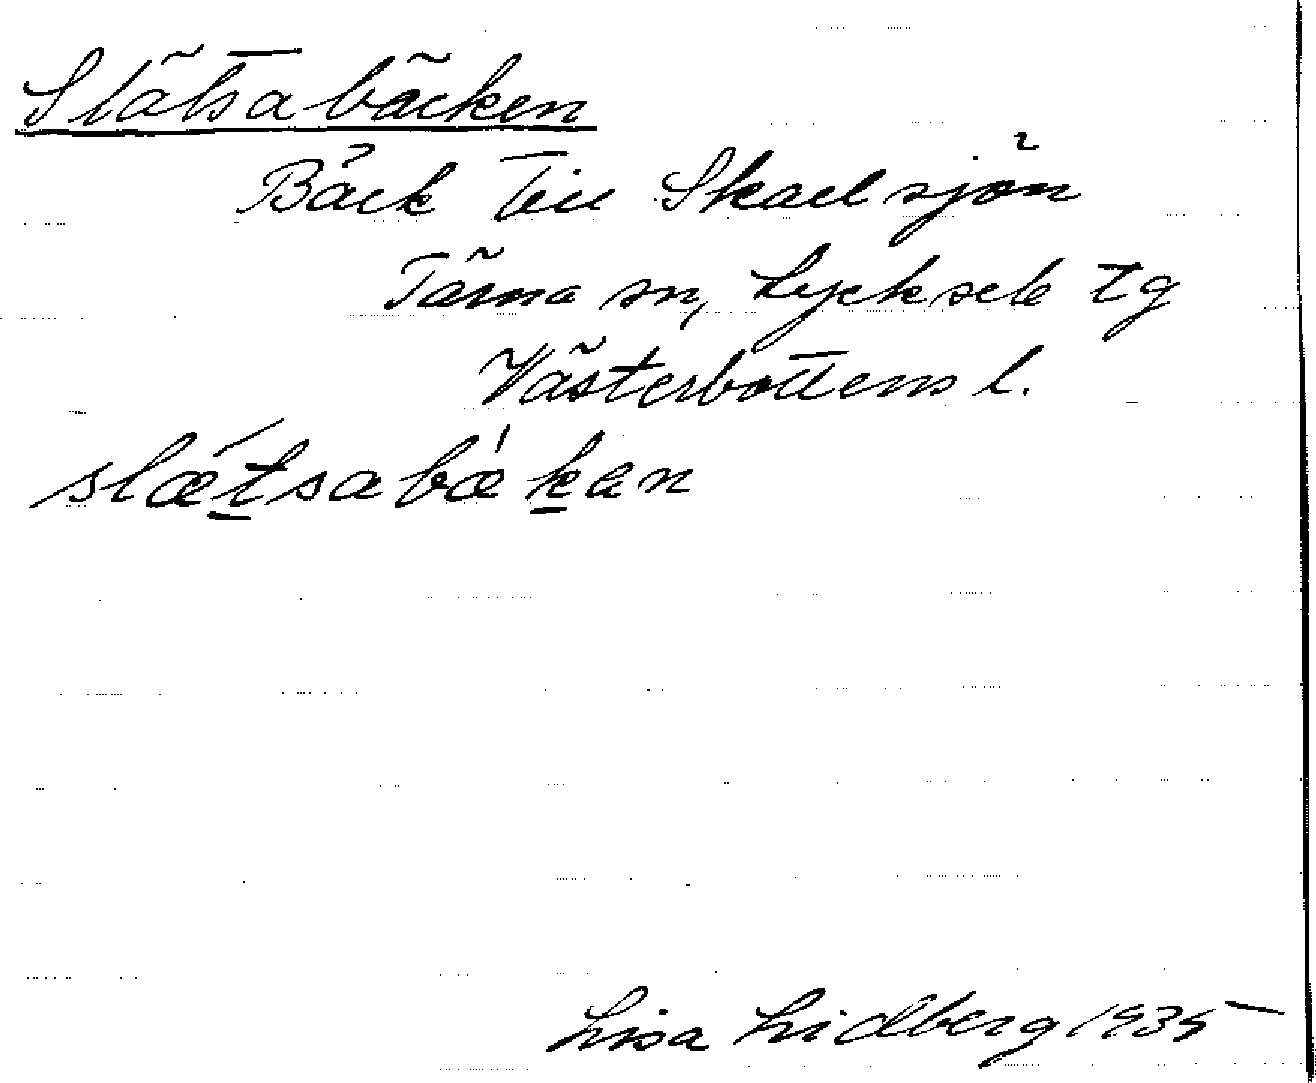 Slätsabäcken
Bäck till Skaelsjön
Tärna sn, Lycksele tg
Västerbottens l.
slǽtsabæ̀kan
Lisa Lidberg 1935